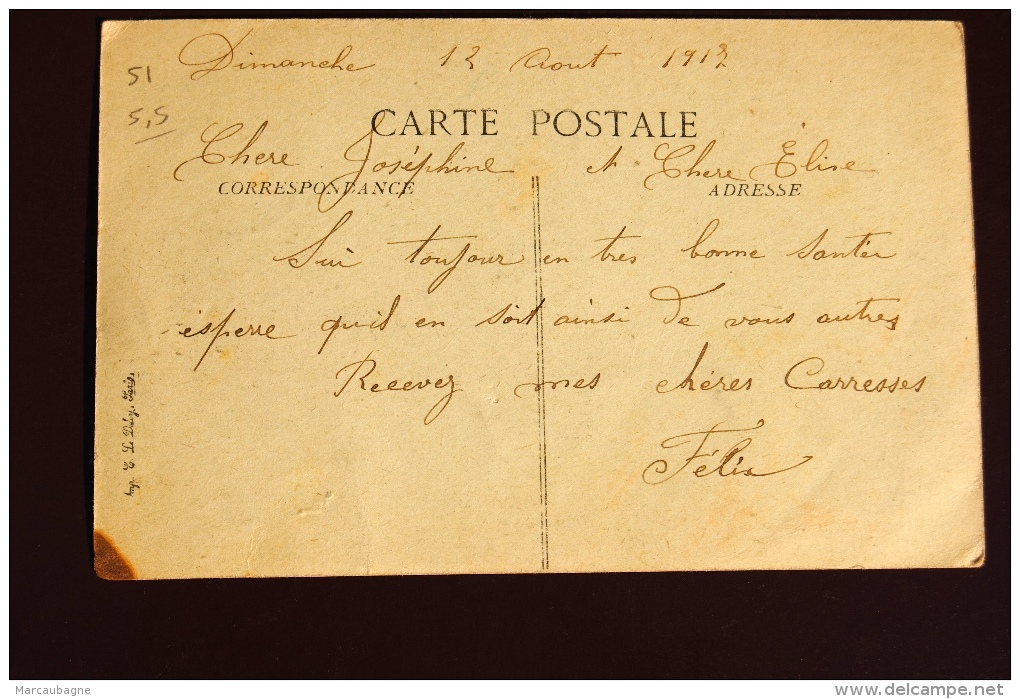 Dimanche 12 Aout 191
51
5,5
CARTE POSTALE
Chere Joséphine et Chere Élise
CORRESPONDANCE
ADRESSE
Sui toujour en tres bonne Santée
ésperre qu'il en soit ainsi de vous autres
Recevez mes chéres Carresses
Félix
Imp. E. Le Deley, Paris.
Marcaubagne
www.delcampe.net